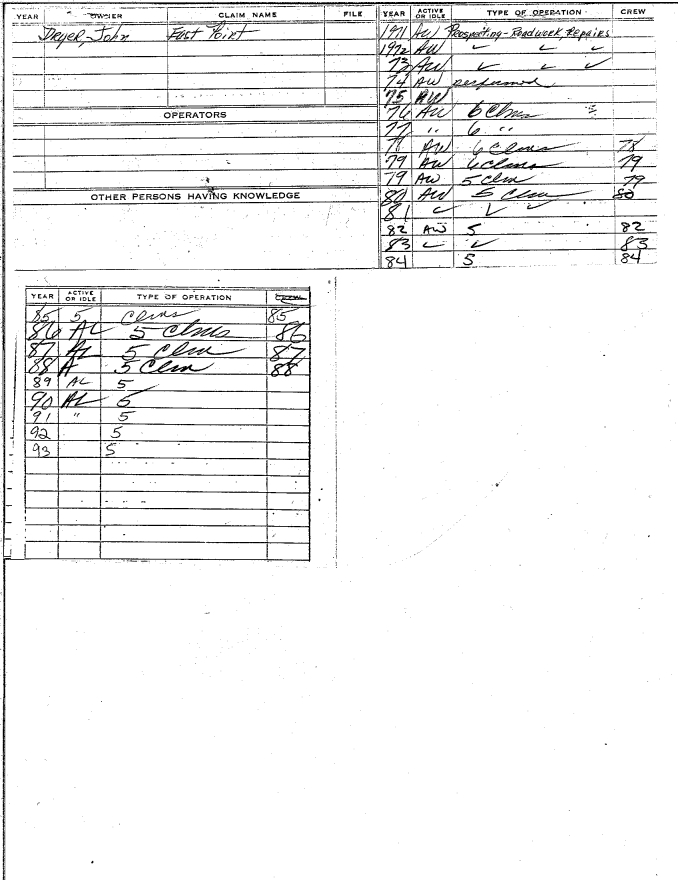 YEAR OWNER CLAIM NAME FILE
Dreyer, John East Point
OPERATORS
OTHER PERSONS HAVING KNOWLEDGE
YEAR ACTIVE OR IDLE TYPE OF OPERATION CREW
1971 AW Prospecting - Roadwork, Repairs
1972 AW ✓ ✓ ✓
73 AW ✓ ✓ ✓
74 AW performed
75 AW
76 AW 6 Clms
77 " 6 "
AW 6 Clms 78
79 AW 6 Clms 79
79 AW 5 Clm 79
80 AW 5 Clm 80
81 ✓ ✓ ✓
82 AW 5 82
83 ✓ ✓ 83
84 5 84
YEAR ACTIVE OR IDLE TYPE OF OPERATION CREW
85 5 Clms 85
86 AL 5 Clms 86
87 AL 5 Clm 87
88 A 5 Clm 88
89 AL 5
90 AL 5
91 " 5
92 5
93 5